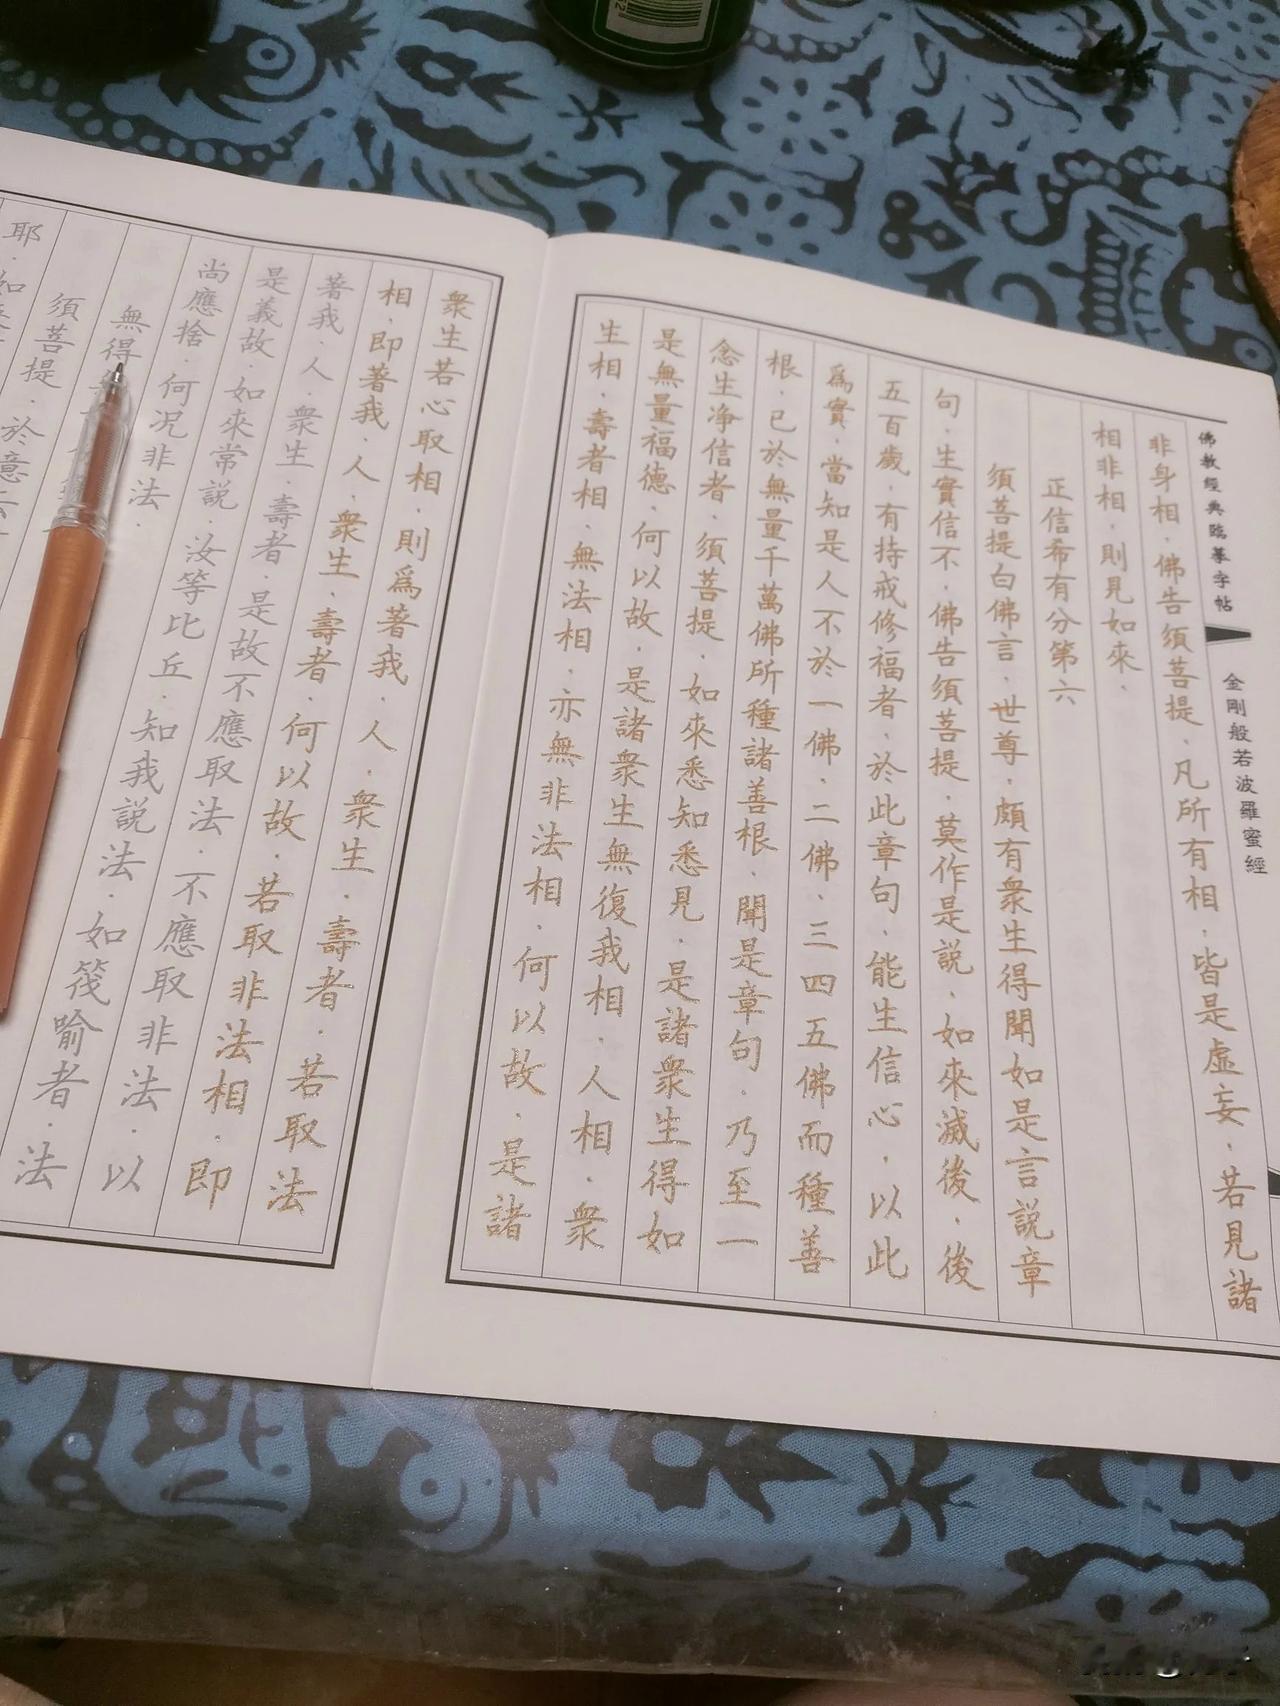 佛教經典臨摹字帖
金剛般若波羅蜜經
非身相．佛告須菩提．凡所有相．皆是虛妄．若見諸
相非相．則見如來．
正信希有分第六
須菩提白佛言．世尊．頗有衆生得聞如是言説章
句．生實信不．佛告須菩提．莫作是説．如來滅後．後
五百歲．有持戒修福者．於此章句．能生信心．以此
爲實．當知是人不於一佛．二佛．三四五佛而種善
根．已於無量千萬佛所種諸善根．聞是章句．乃至一
念生淨信者．須菩提．如來悉知悉見．是諸衆生得如
是無量福德．何以故．是諸衆生無復我相．人相．衆
生相．壽者相．無法相．亦無非法相．何以故．是諸
衆生若心取相．則爲著我．人．衆生．壽者．若取法
相．即著我．人．衆生．壽者．何以故．若取非法相．即
著我．人．衆生．壽者．是故不應取法．不應取非法．以
是義故．如來常説．汝等比丘．知我説法．如筏喻者．法
尚應捨．何況非法．
無得
須菩提．於意云
耶．如